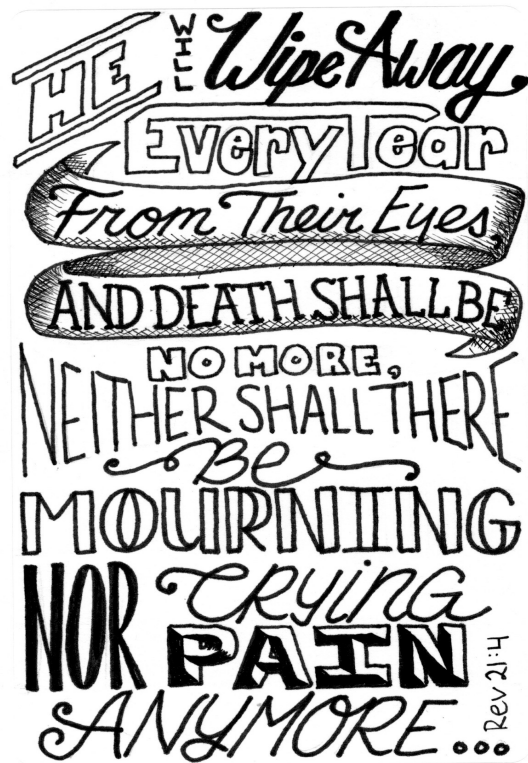 HE WILL Wipe Away
Every Tear
From Their Eyes,
AND DEATH SHALL BE
NO MORE,
NEITHER SHALL THERE
BE
MOURNING
NOR CRYING
PAIN
ANYMORE...
Rev 21:4